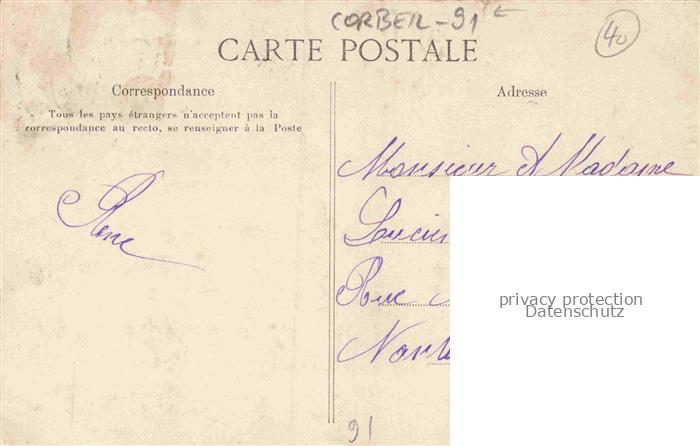 CORBEIL-91
40
CARTE POSTALE
Correspondance
Tous les pays étrangers n'acceptent pas la
correspondance au recto, se renseigner à la Poste
Adresse
Monsieur et Madame
Rue
privacy protection
Datenschutz
91